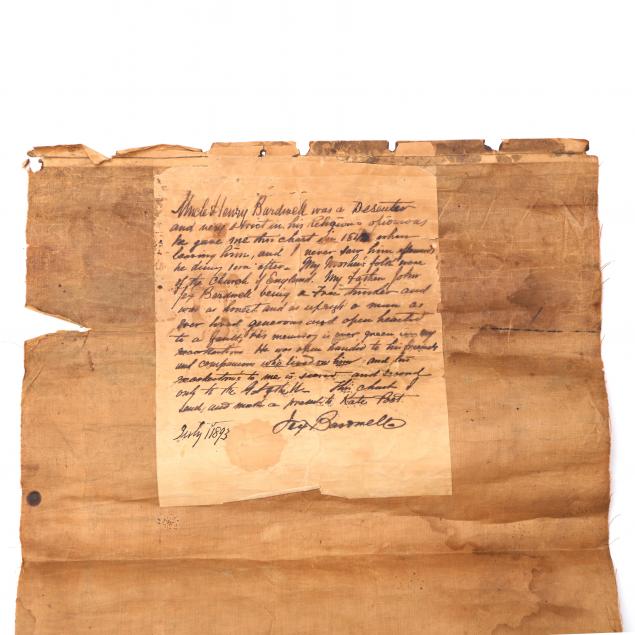 Uncle Henry Bardwell was a Desenter
and very strict in his Religious opinions
he gave me this chart in 184 when
leaving him, and I never saw him afterwards
he dieing soon after. My Mothers folks were
of the Church of England My father John
Jay Bardwell being a Free thinker and
was as honest and as upright a man as
ever lived generous and open hearted
to a fault, his memory is ever green in my
recolection. He was open handed to his friends
and companions who lived on him and his
recolections to me is sacred and second
only to the This chart I
lend, and make a Kate Post
July 1 1893 Jay Bardwell